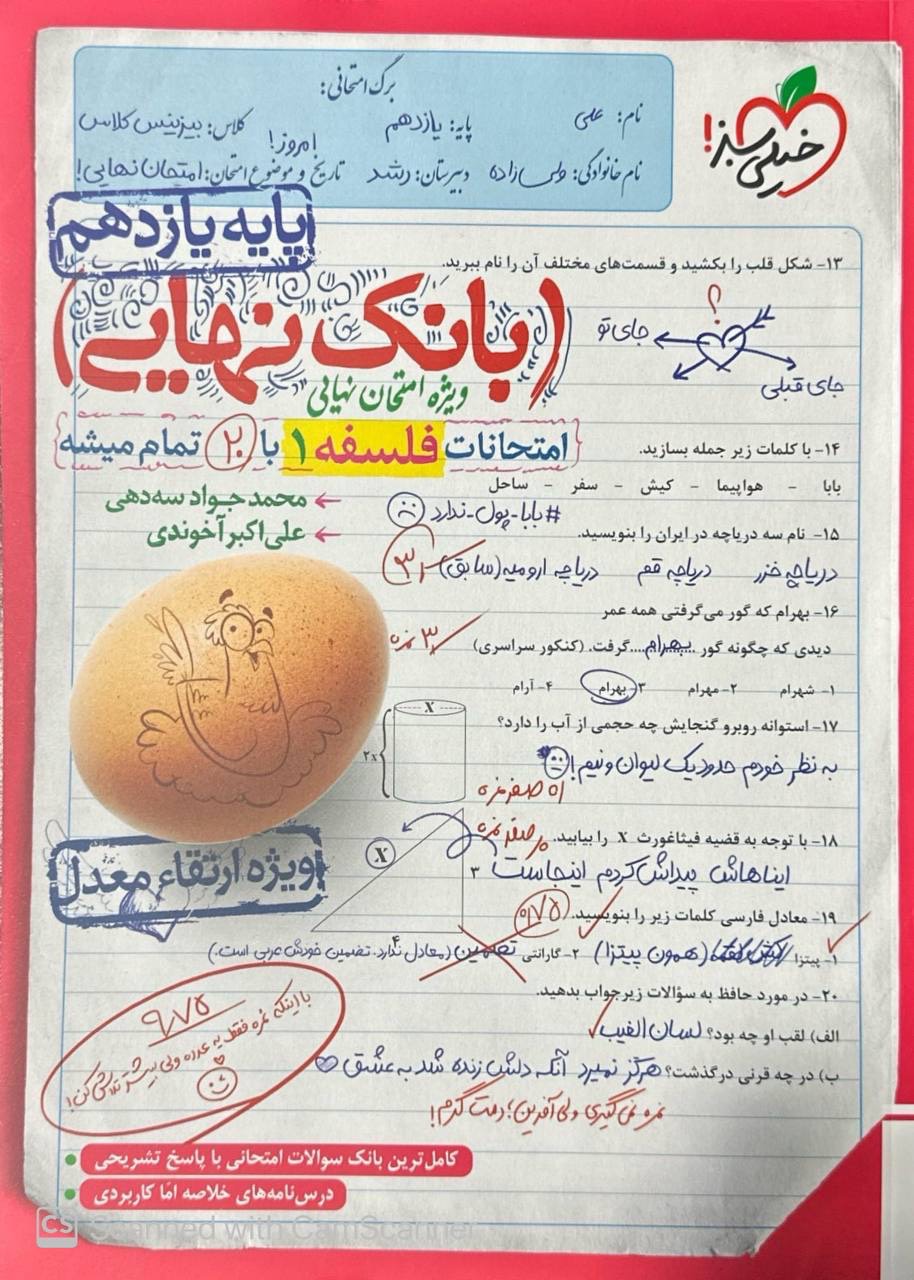 برگ امتحانی:
نام: علی
پایه: یازدهم
کلاس: بیزینس کلاس
نام خانوادگی: ولی زاده
دبیرستان: رشد
تاریخ و موضوع امتحان: امتحان نهایی!
امروز!
خیلی سبز!
پایه یازدهم
(بانک نهایی)
ویژه امتحان نهایی
امتحانات فلسفه ۱ با ۲۰ تمام میشه
← محمدجواد سه‌دهی
← علی‌اکبر آخوندی
ویژه ارتقاء معدل
۱۳- شکل قلب را بکشید و قسمت‌های مختلف آن را نام ببرید.
؟
جای تو
جای قبلی
۱۴- با کلمات زیر جمله بسازید.
بابا - هواپیما - کیش - سفر - ساحل
#بابا-پول-ندارد
۱۵- نام سه دریاچه در ایران را بنویسید.
دریاچه خزر دریاچه قم دریاچه ارومیه (سابق)
۳
۱۶- بهرام که گور می‌گرفتی همه عمر
دیدی که چگونه گور ....بهرام....گرفت. (کنکور سراسری)
۳ نمره
۱- شهرام ۲- مهرام ۳- بهرام ۴- آرام
۱۷- استوانه روبرو گنجایش چه حجمی از آب را دارد؟
X
۲x
به نظر خودم حدود یک لیوان و نیم!
اه صفر نمره
۱۸- با توجه به قضیه فیثاغورث X را بیابید.
صفر نمره
ایناهاش پیداش کردم اینجاست
X
۳
۴
۱۹- معادل فارسی کلمات زیر را بنویسید.
۰/۷۵
۱- پیتزا (همون پیتزا) ۲- گارانتی تضمین (معادل ندارد. تضمین خودش عربی است.)
۲۰- در مورد حافظ به سؤالات زیر جواب بدهید.
الف) لقب او چه بود؟ لسان الغیب
ب) در چه قرنی درگذشت؟ هرگز نمیرد آنکه دلش زنده شد به عشق
نمره نمی‌گیری ولی آفرین؛ دمت گرم!
۹/۷۵
با اینکه نمره فقط یه عدده ولی بیشتر تلاش کن!
کامل‌ترین بانک سوالات امتحانی با پاسخ تشریحی
درس‌نامه‌های خلاصه امّا کاربردی
CS Scanned with CamScanner